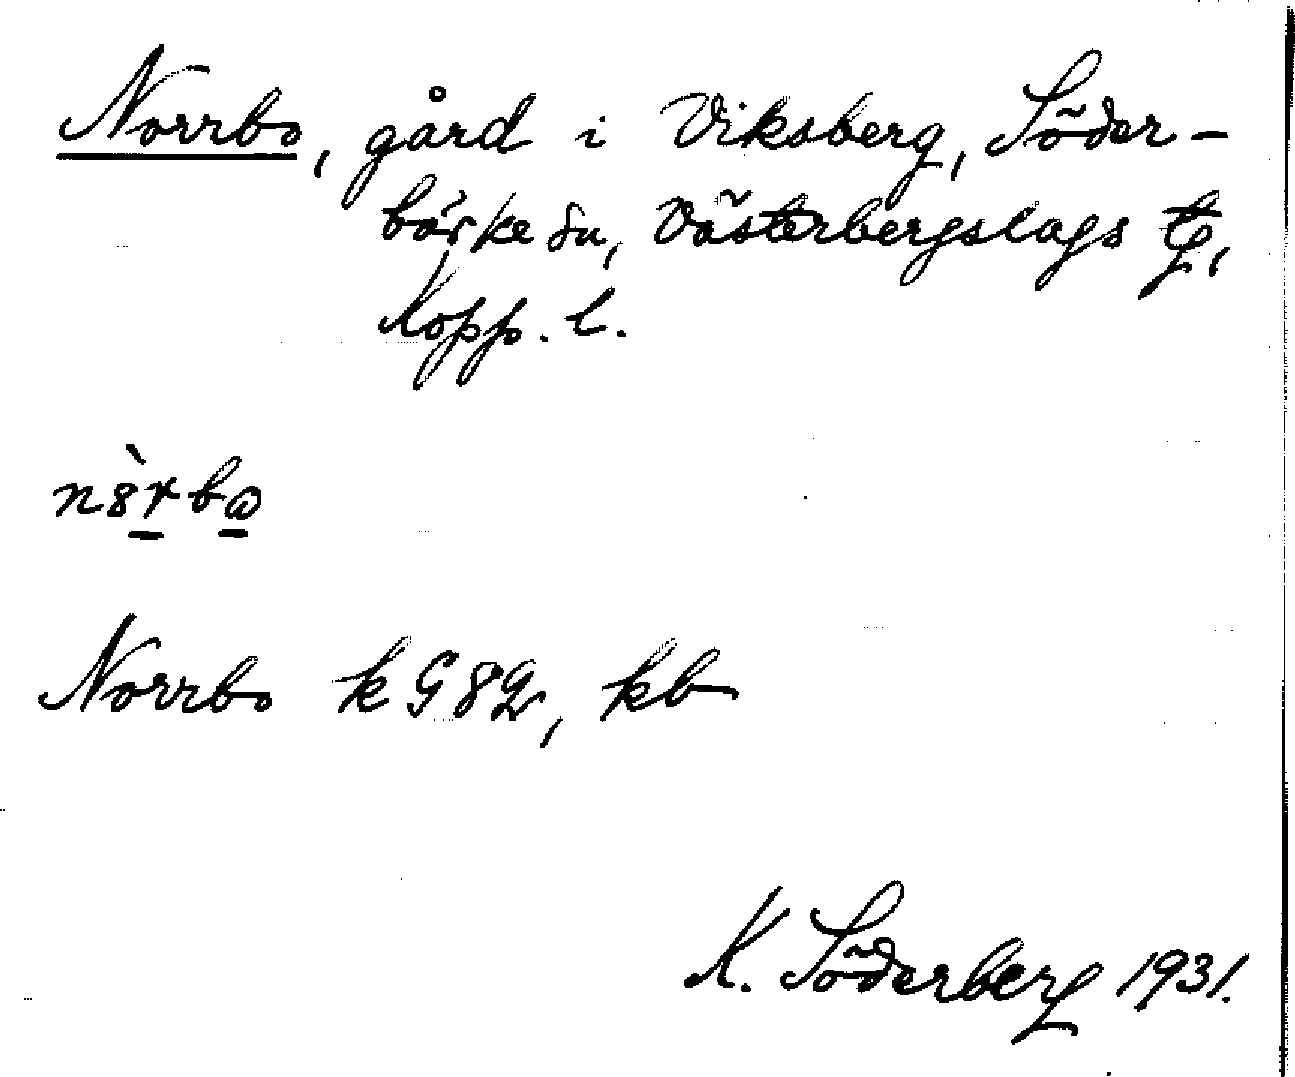 Norrbo, gård i Viksberg, Söder-
bärke sn, Västerbergslags tg,
Kopp. l.
Norrbo k G82, kb
K. Söderberg 1931.